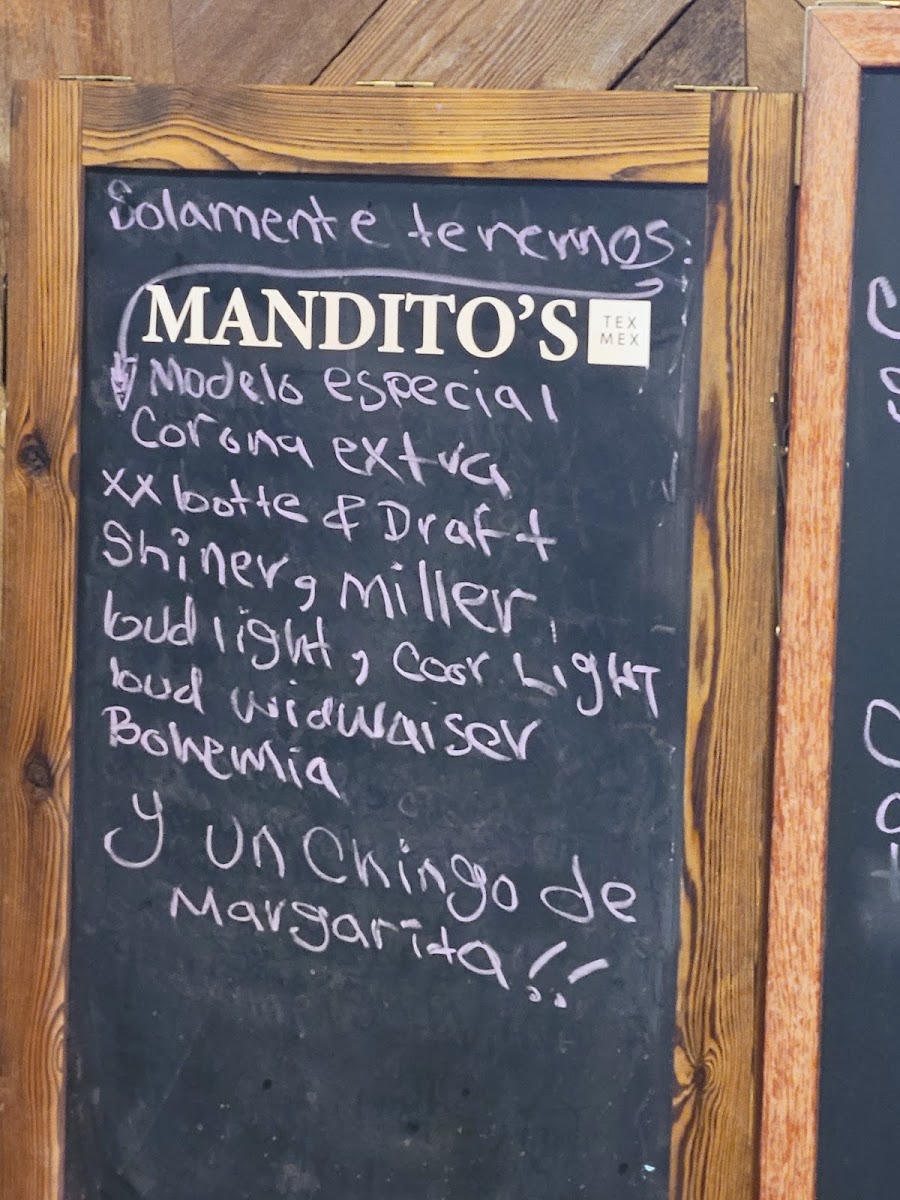 Solamente tenemos:
MANDITO'S
TEX
MEX
Modelo especial
Corona extra
XX botte & Draft
Shiner, Miller,
bud light, Coor Light
bud widwaiser
Bohemia
y un Chingo de
Margarita!!